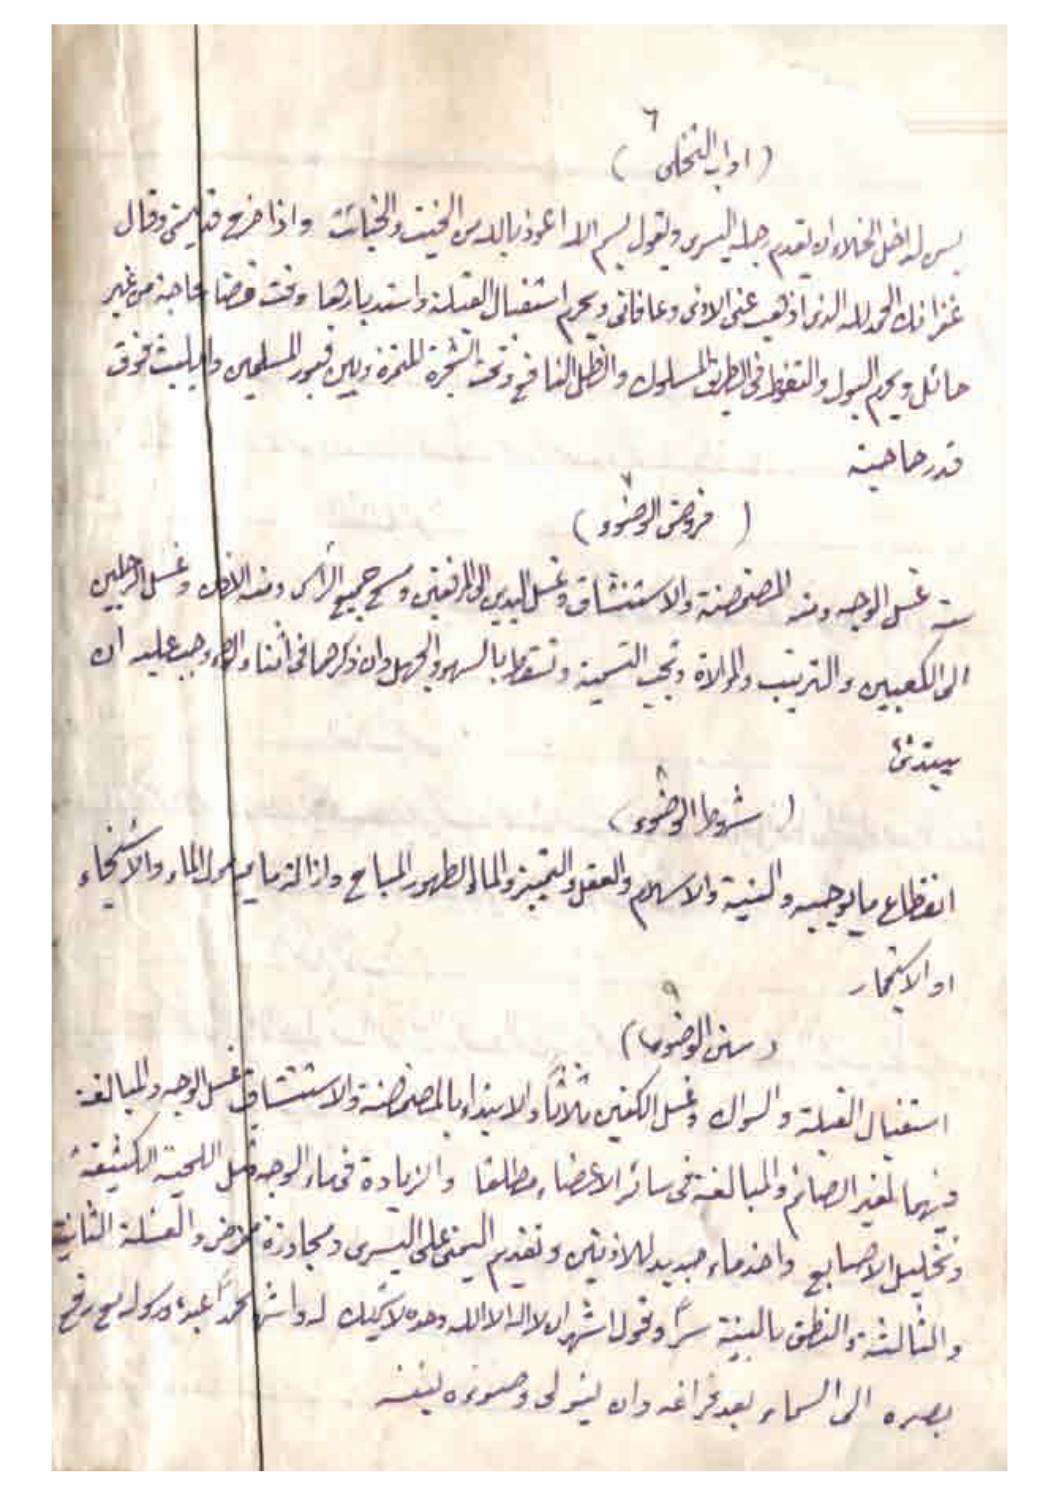 ٦
( اداب التخلى )
يسن لداخل الخلاء ان يقدم رجله اليسرى ويقول بسم الله اعوذ بالله من الخبث والخبائث واذا خرج قدم يمنى وقال
غفرانك الحمد لله الذى اذهب عنى الاذى وعافانى ويحرم استقبال القبلة واستدبارها وقت قضا حاجة من غير
حائل ويحرم البول والتغوط فى الطريق المسلوك والظل النافع وتحت الشجرة المثمرة وبين قبور المسلمين واللبث فوق
قدر حاجته
٧
( فروض الوضوء )
ستة غسل الوجه ومنه المضمضة والاستنشاق وغسل اليدين الى المرفقين ومسح جميع الراس ومنه الاذان وغسل الرجلين
الى الكعبين والترتيب والموالاة وتجب التسمية وتسقط بالسهو والجهل وان ذكرها فى اثناء وجب عليه ان
يبتدئ
٨
( شروط الوضوء )
انقطاع ما يوجبه والنية والاسلام والعقل والتميز والماء الطهور المباح وازالة ما يمنع وصول الماء والاستنجاء
او الاستجمار
٩
( سنن الوضوء )
استقبال القبلة والسواك وغسل الكفين ثلاثاً والابتداء بالمضمضة والاستنشاق غسل الوجه والمبالغة
فيهما لغير الصائم والمبالغة فى سائر الاعضاء مطلقا والزيادة فى ماء الوجه اللحية الكثيفة
وتخليل الاصابع واخذ ماء جديد للاذنين وتقديم اليمنى على اليسرى ومجاوزة والغسلة الثانية
والثالثة والنطق بالنية سرًا وقول اشهد ان لا اله الا الله وحده لا شريك له واشهد محمدًا عبده ورسوله مع رفع
بصره الى السماء بعد فراغه وان يتولى وضوئه بنفسه